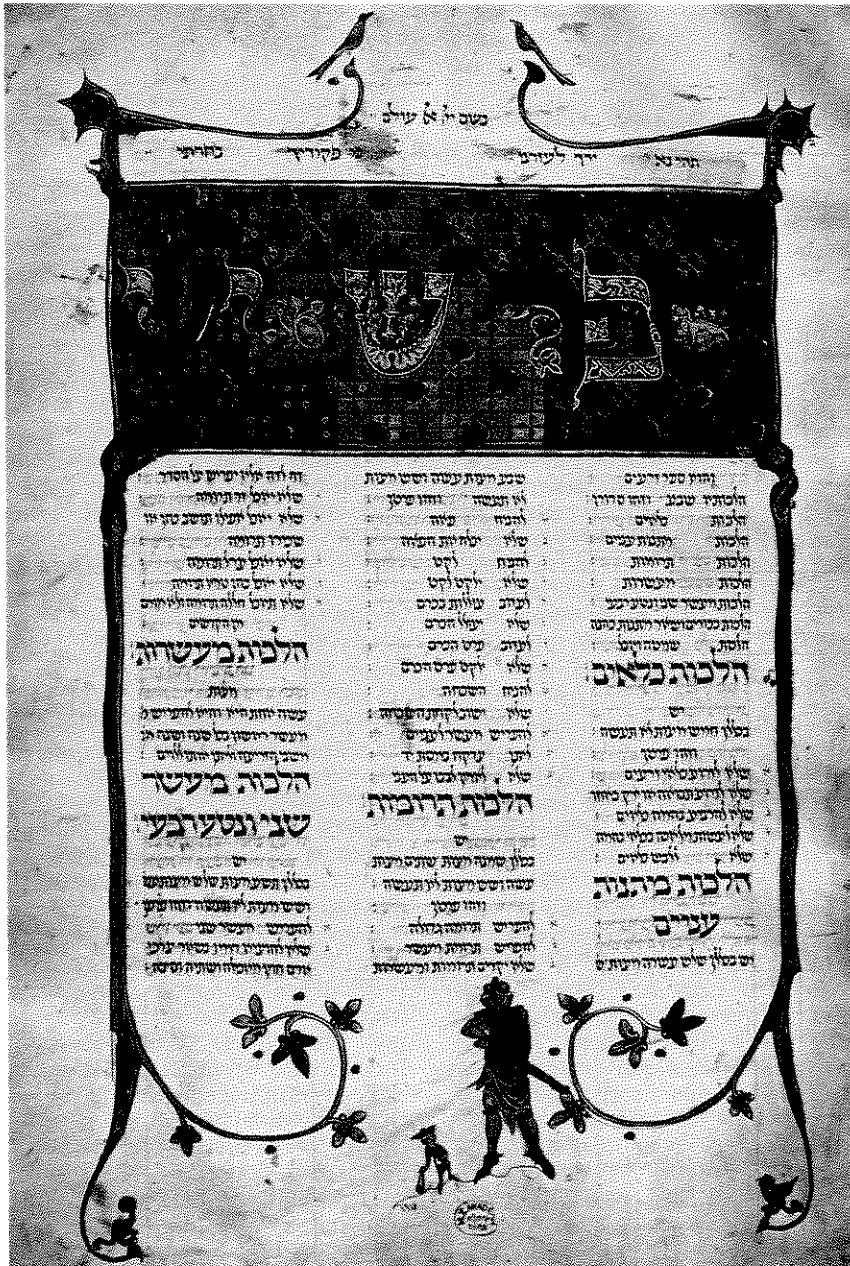 בשם יי' אל עולם
תהי נא ידך לעזרני כי פקודיך בחרתי
והוא ספר זרעים
הלכותיו שבע וזהו סדורן
הלכות כלאים
הלכות מתנות עניים
הלכות תרומות
הלכות מעשרות
הלכות מעשר שני ונטע רבעי
הלכות בכורים ושאר מתנות כהונה
הלכות שמטה ויובל
הלכות כלאים
יש
בכללן חמש מצות לא תעשה
וזהו פרטן
שלא לזרוע כלאי זרעים
שלא לזרוע תבואה או ירק בכרם
שלא להרביע בהמה כלאים
שלא לעשות מלאכה בכלאי בהמה
שלא ללבש כלאים
הלכות מתנות
עניים
יש בכללן שלש עשרה מצות
שבע מצות עשה ושש מצות
לא תעשה וזהו פרטן
להניח פאה
שלא יכלה את הפאה
להניח לקט
שלא ילקט לקט
לעזוב עוללות בכרם
שלא יעולל הכרם
לעזוב פרט הכרם
שלא ילקט פרט הכרם
להניח השכחה
שלא ישוב לקחת השכחה
להפריש מעשר לעניים
ליתן צדקה כמסת יד
שלא יאמץ לבבו על העני
הלכות תרומות
יש
בכללן שמונה מצות שתים מצות
עשה ושש מצות לא תעשה
וזהו פרטן
להפריש תרומה גדולה
להפריש תרומת מעשר
שלא יקדים תרומות ומעשרות
זה לזה אלא יפריש על הסדר
שלא יאכל זר תרומה
שלא יאכל אפילו תושב כהן או
שכירו תרומה
שלא יאכל ערל תרומה
שלא יאכל כהן טמא תרומה
שלא תאכל חללה תרומה ולא מורם
מן הקדשים
הלכות מעשרות
מצות
עשה אחת היא והיא להפריש
מעשר ראשון בכל שנה ושנה
הלכות מעשר
שני ונטע רבעי
יש
בכללן תשע מצות שלש מצות עשה
ושש מצות לא תעשה וזהו פרטן
להפריש מעשר שני
שלא להוציא דמיו בשאר צרכי
אדם חוץ מאכילה ושתיה וסיכה